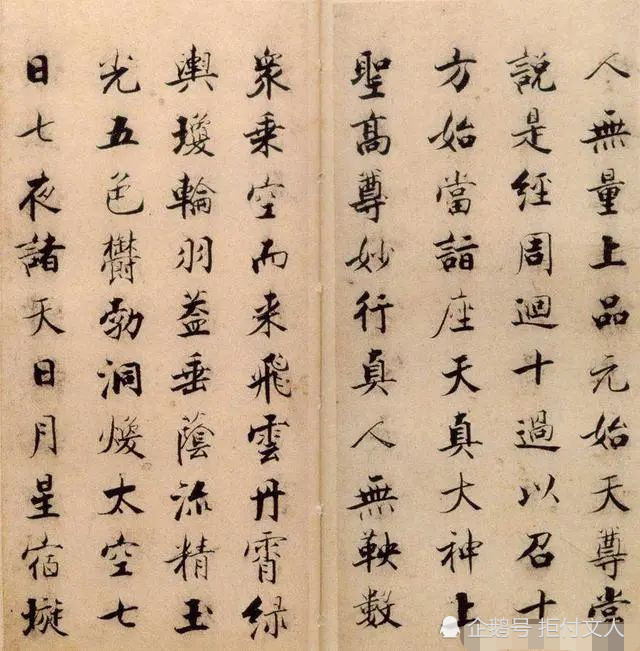 人無量上品元始天尊當
說是經周迴十過以召十
方始當詣座天真大神上
聖高尊妙行真人無鞅數
衆乗空而来飛雲丹霄緑
輿瓊輪羽蓋垂蔭流精玉
光五色欝勃洞煥太空七
日七夜諸天日月星宿璇
企鹅号 拒付文人